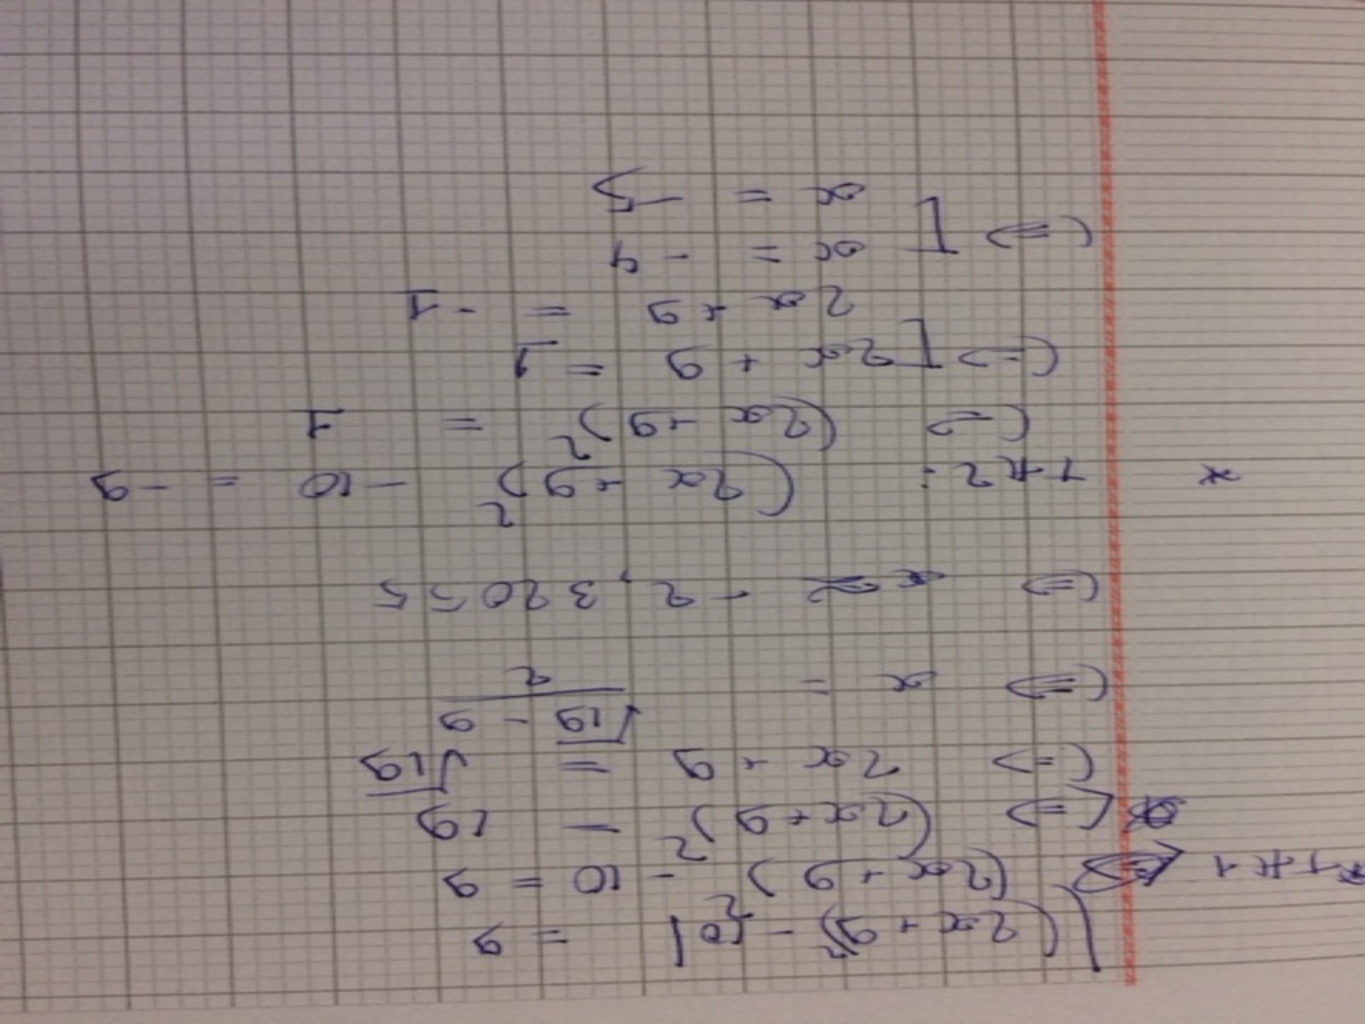 |(2x+9)² - 10| = 9
* TH1 <=> (2x+9)² - 10 = 9
<=> (2x+9)² = 19
<=> 2x + 9 = √19
<=> x = (√19 - 9)/2
<=> x ≈ -2,32055
* TH2: (2x+9)² - 10 = -9
<=> (2x+9)² = 1
<=> [ 2x + 9 = 1
2x + 9 = -1
<=> [ x = -4
x = -5